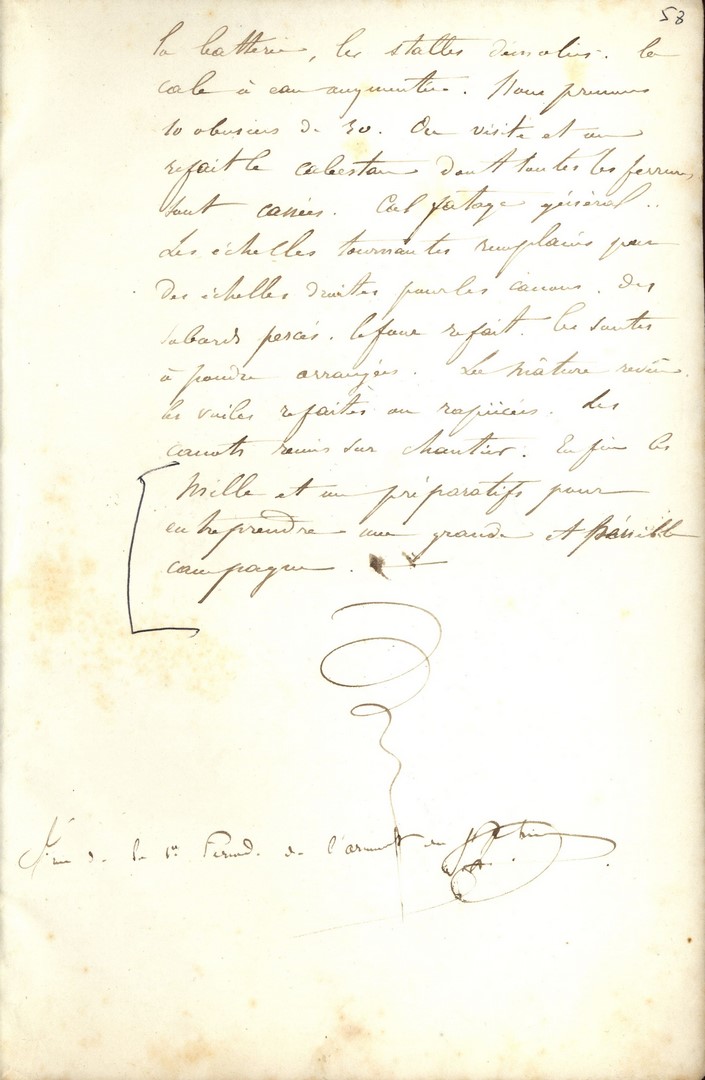 58
la batterie, les stalles démolies. la
cale à eau augmentée. Nous prenons
10 obusiers de 30. On visite et on
refait le cabestan dont toutes les ferrures
sont cassées. Calfatage général.
Les échelles tournantes remplacées par
des échelles droites pour les canons. des
sabords percés. le four refait. les soutes
à poudre arrangées. La mâture revue.
les voiles refaites ou rapiécées. Les
canots remis sur chantier. Enfin les
mille et un préparatifs pour
entreprendre une grande et pénible
campagne.
Fin de la 1re Périod. de l'armt du